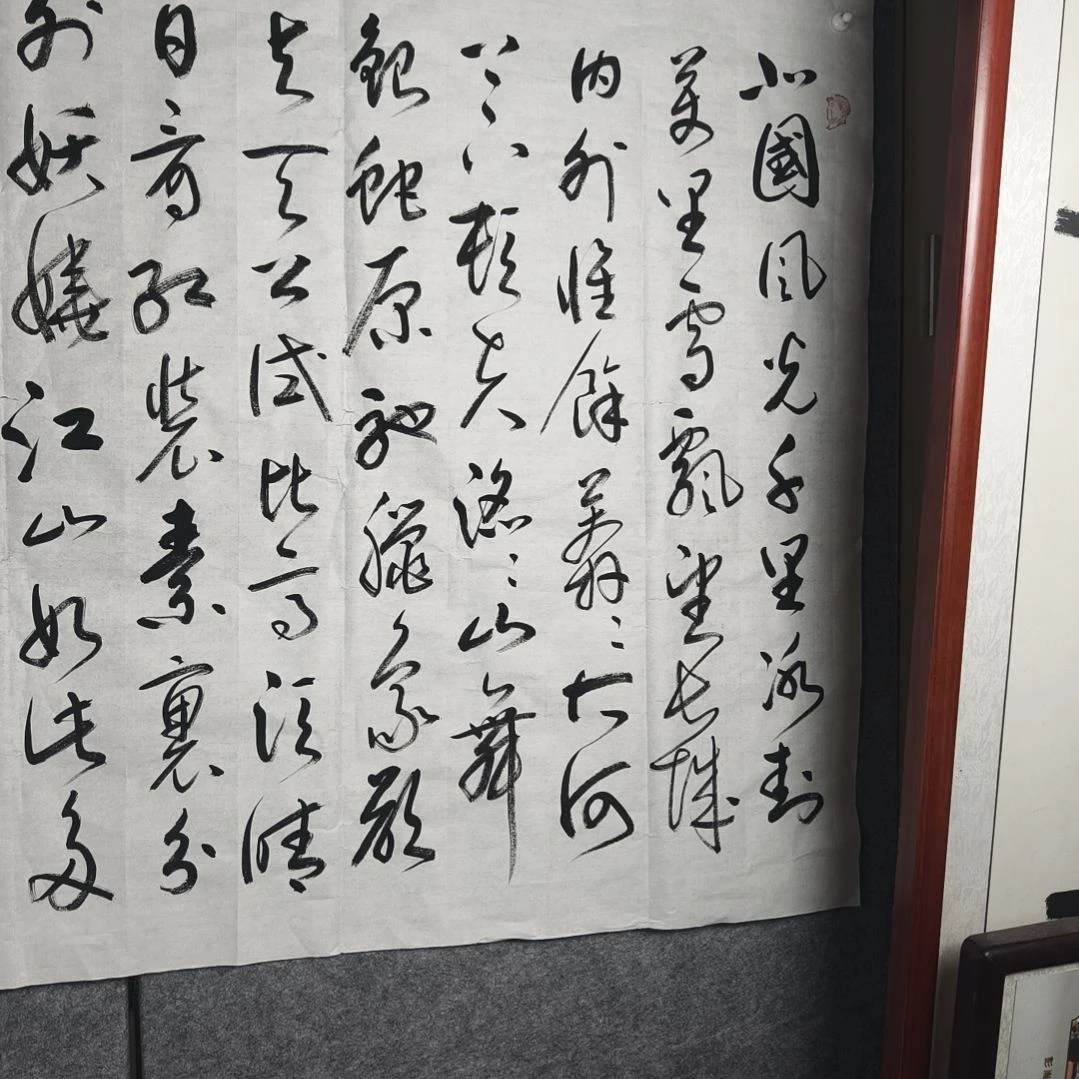 北國風光千里冰封
萬里雪飄望長城
内外惟餘莽〻大河
上下頓失滔〻山舞
銀蛇原馳臘象欲
与天公試比高須晴
日看紅裝素裹分
外妖嬈江山如此多